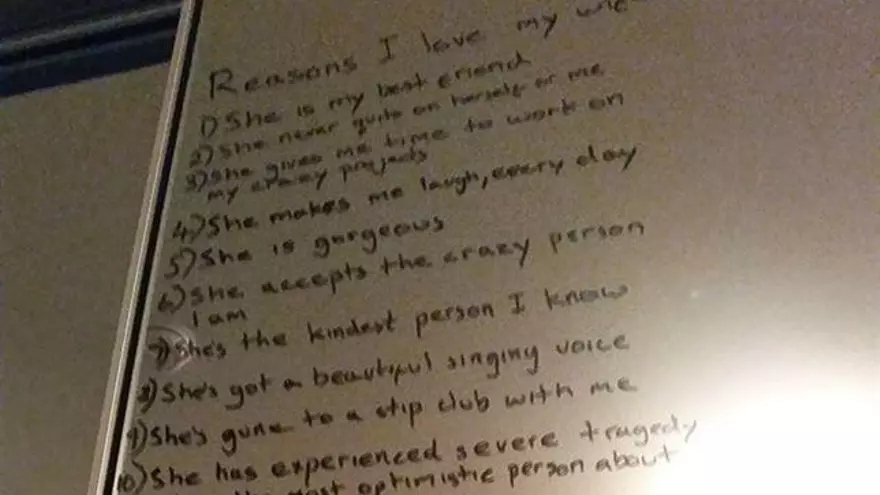 Reasons I love my
1) She is my best friend
2) She never quits on herself or me
3) She gives me time to work on
my crazy projects
4) She makes me laugh, every day
5) She is gorgeous
6) She accepts the crazy person
I am
7) She's the kindest person I know
8) She's got a beautiful singing voice
9) She's gone to a stip club with me
10) She has experienced severe tragedy
most optimistic person about